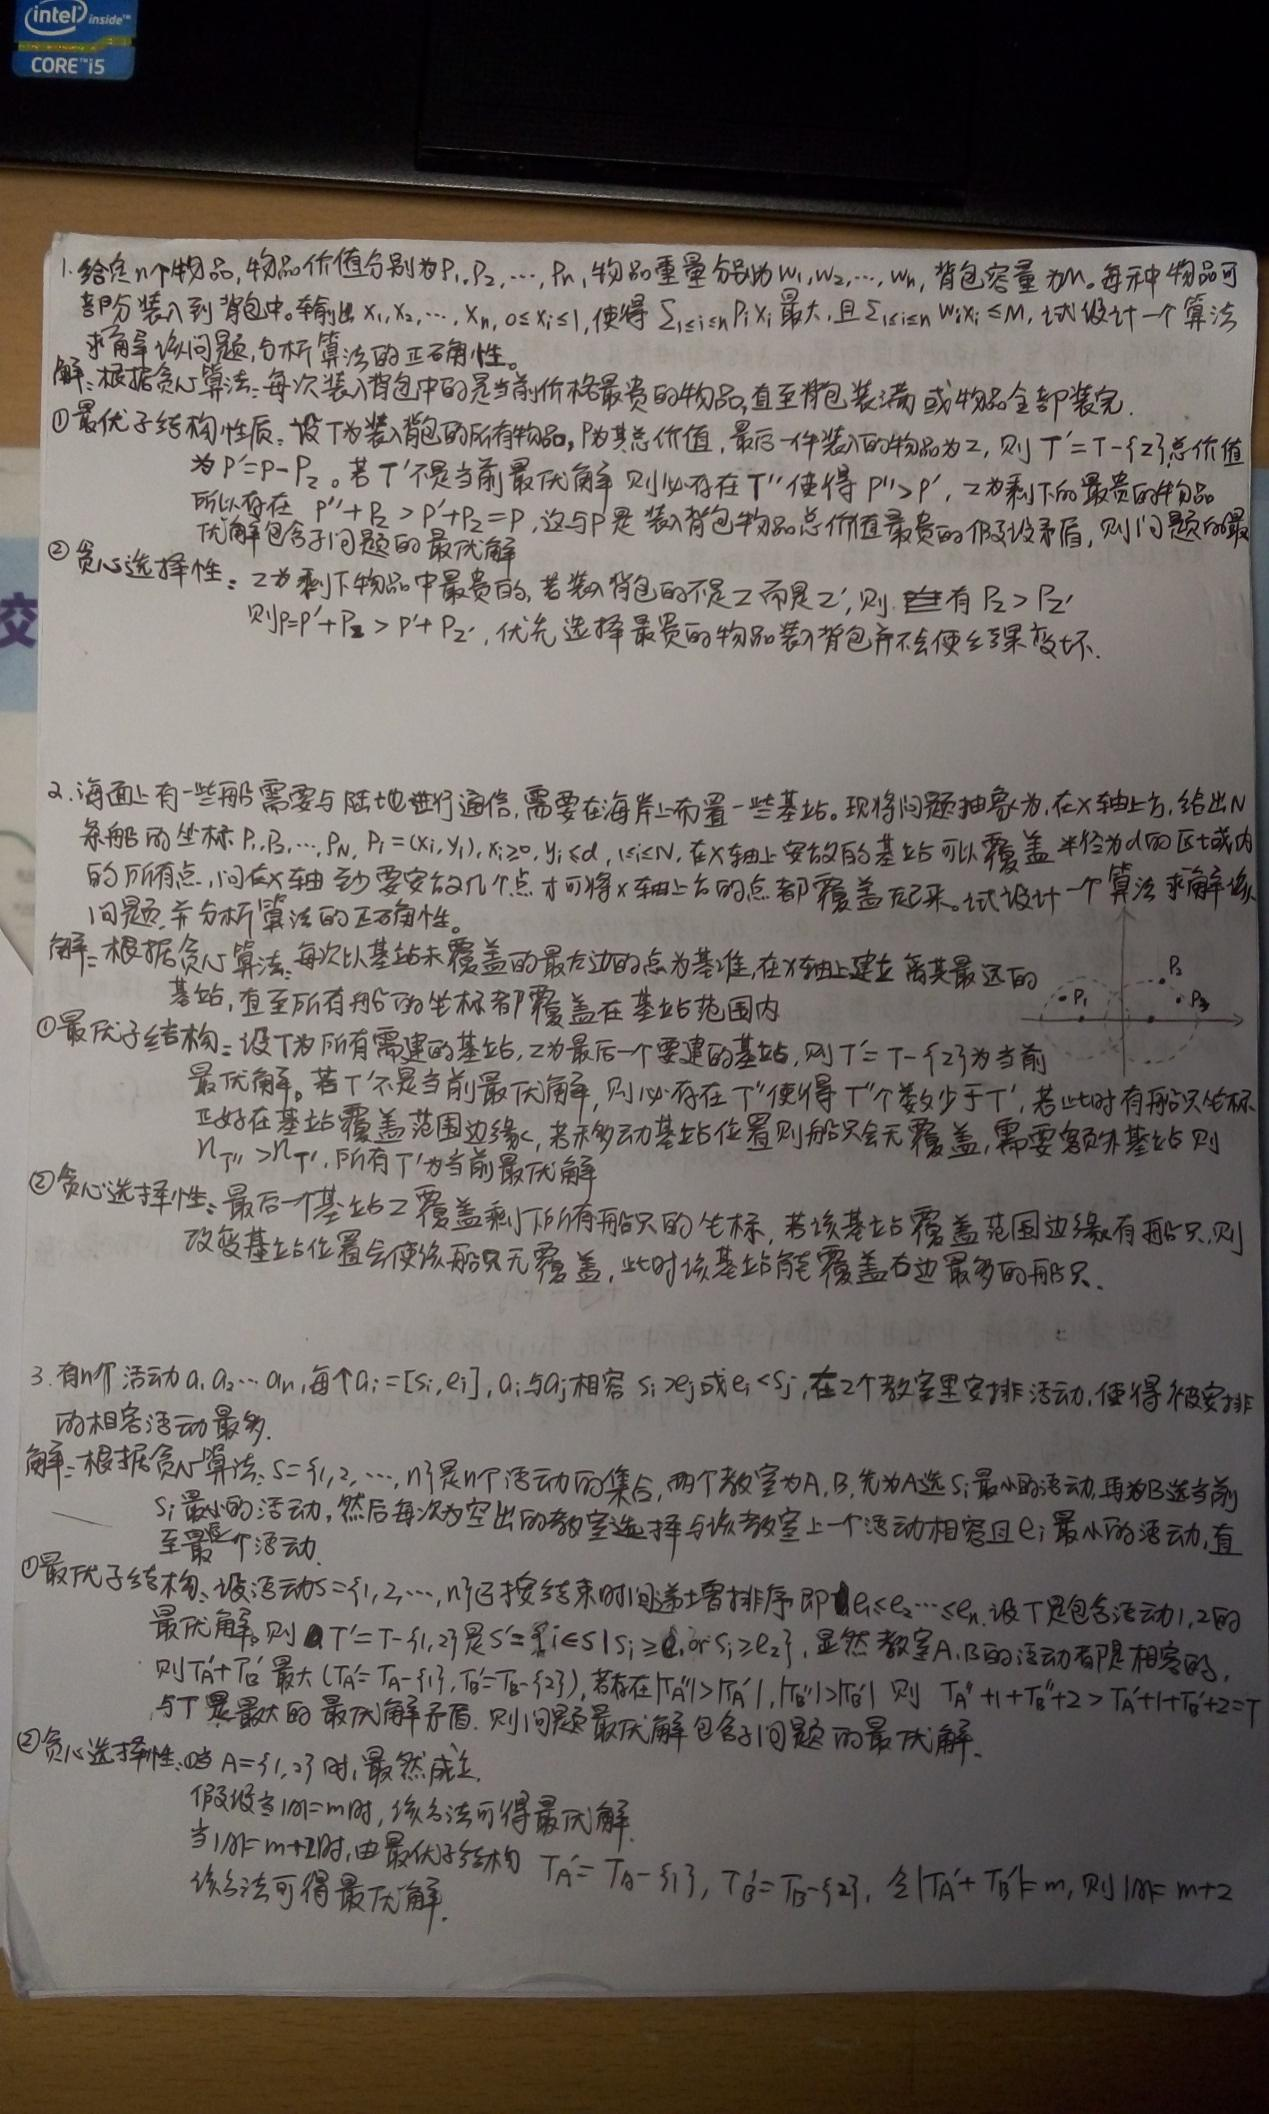 intel inside™
CORE™ i5
交
1. 给定n个物品, 物品价值分别为P₁, P₂, …, Pn, 物品重量分别为w₁, w₂, …, wn, 背包容量为M。每种物品可
部分装入到背包中。输出x₁, x₂, …, xn, 0≤xi≤1, 使得 Σ1≤i≤n Pixi 最大, 且Σ1≤i≤n wixi≤M, 试设计一个算法
求解该问题, 分析算法的正确性。
解: 根据贪心算法: 每次装入背包中的是当前价格最贵的物品, 直至背包装满或物品全部装完.
①最优子结构性质: 设T为装入背包的所有物品, P为其总价值, 最后一件装入的物品为Z, 则 T'=T-{Z}总价值
为P'=P-Pz。若T'不是当前最优解 则必存在T''使得 P''>P', Z为剩下的最贵的物品
所以存在 P''+Pz>P'+Pz=P, 这与P是装入背包物品总价值最贵的假设矛盾, 则问题的最
优解包含子问题的最优解
②贪心选择性: Z为剩下物品中最贵的, 若装入背包的不是Z而是Z', 则 有Pz>Pz'
则P=P'+Pz>P'+Pz', 优先选择最贵的物品装入背包并不会使结果变坏.
2. 海面上有一些船需要与陆地进行通信, 需要在海岸上布置一些基站。现将问题抽象为, 在x轴上方, 给出N
条船的坐标P₁, P₂, …, PN, Pi=(xi, yi), xi≥0, yi≤d, 1≤i≤N, 在x轴上安放的基站可以覆盖半径为d的区域内
的所有点, 问在x轴至少要安放几个点才可将x轴上方的点都覆盖起来。试设计一个算法求解该
问题, 并分析算法的正确性。
解: 根据贪心算法: 每次以基站未覆盖的最左边的点为基准, 在x轴上建立离其最远的
基站, 直至所有船的坐标都覆盖在基站范围内
P₁
P₂
P₃
①最优子结构: 设T为所有需建的基站, Z为最后一个要建的基站, 则T'=T-{Z}为当前
最优解。若T'不是当前最优解, 则必存在T''使得T''个数少于T', 若此时有船只坐标
正好在基站覆盖范围边缘, 若移动基站位置则船只会无覆盖, 需要额外基站 则
nT''>nT', 所有T'为当前最优解
②贪心选择性: 最后一个基站Z覆盖剩下所有船只的坐标, 若该基站覆盖范围边缘有船只, 则
改变基站位置会使该船只无覆盖, 此时该基站能覆盖右边最多的船只.
3. 有n个活动a₁ a₂…an, 每个ai=[si, ei], ai与aj相容 si≥ej或ei<sj, 在2个教室里安排活动, 使得被安排
的相容活动最多.
解: 根据贪心算法: S={1, 2, …, n}是n个活动的集合, 两个教室为A, B, 先为A选si最小的活动, 再为B选当前
si最小的活动, 然后每次为空出的教室选择与该教室上一个活动相容且ei最小的活动, 直
至最后个活动.
①最优子结构: 设活动S={1, 2, …, n}已按结束时间递增排序 即 e₁≤e₂…≤en. 设T是包含活动1, 2的
最优解, 则 T'=T-{1, 2}是S'={i∈S|si≥e₁ or si≥e₂}, 显然教室A, B的活动都是相容的,
则TA'+TB' 最大 (TA'=TA-{1}, TB'=TB-{2}), 若存在|TA''|>|TA'|, |TB''|>|TB'| 则 TA''+1+TB''+2>TA'+1+TB'+2=T
与T是最大的最优解矛盾. 则问题最优解包含子问题的最优解.
②贪心选择性: 当A={1, 2}时, 显然成立.
假设当|A|=m时, 该方法可得最优解.
当|A|=m+2时, 由最优子结构 TA'=TA-{1}, TB'=TB-{2}, 令|TA'+TB'|=m, 则|A|=m+2
该方法可得最优解.